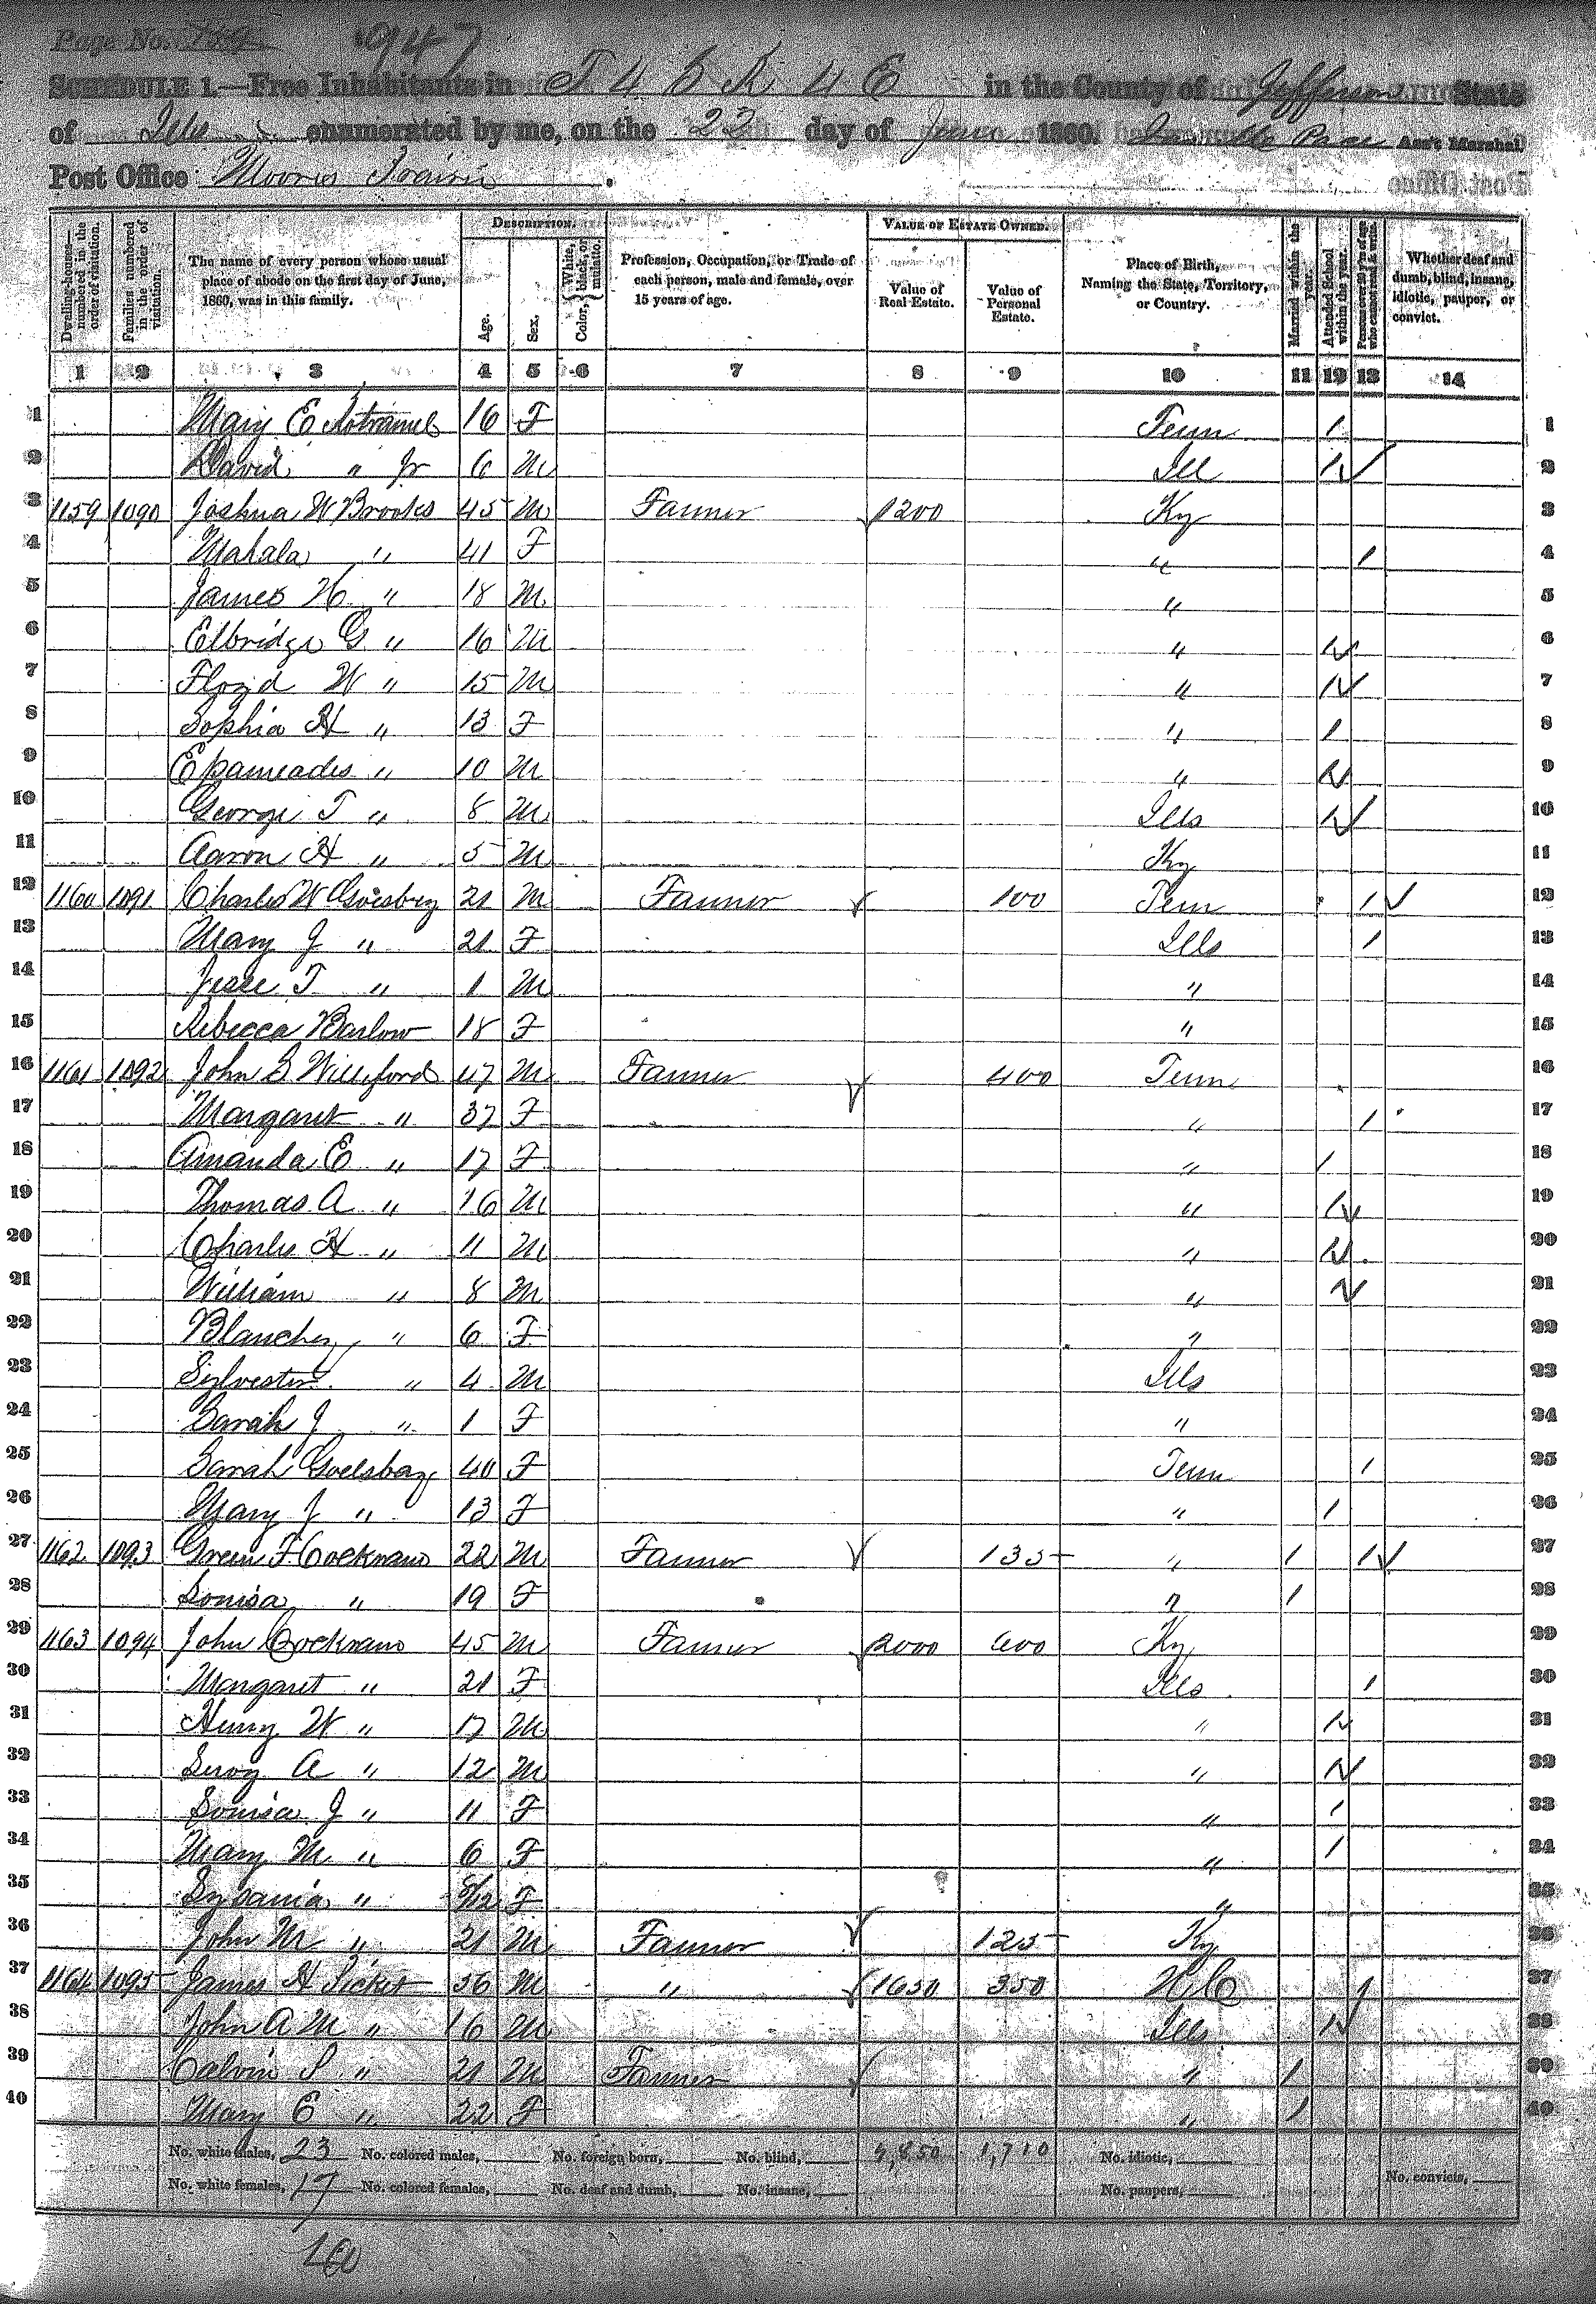 Page No.
947
SCHEDULE 1.—Free Inhabitants in T 4 S R 4 E in the County of Jefferson State
of Ills enumerated by me, on the 22 day of June 1860. Pace Ass't Marshal
Post Office Moores Prairie.
Dwelling-houses—numbered in the order of visitation.
Families numbered in the order of visitation.
The name of every person whose usual place of abode on the first day of June, 1860, was in this family.
DESCRIPTION.
Age.
Sex.
Color, { White, black, or mulatto.
Profession, Occupation, or Trade of each person, male and female, over 15 years of age.
VALUE OF ESTATE OWNED.
Value of Real Estate.
Value of Personal Estate.
Place of Birth, Naming the State, Territory, or Country.
Married within the year.
Attended School within the year.
Persons over 20 y'rs of age who cannot read & write.
Whether deaf and dumb, blind, insane, idiotic, pauper, or convict.
1 2 3 4 5 6 7 8 9 10 11 12 13 14
1 Mary E 16 F Tenn 1 1
2 David " Jr 6 M Ill 1 2
3 1159 1090 Joshua W Brooks 45 M Farmer 1200 Ky 3
4 Mahala " 41 F " 1 4
5 James H " 18 M " 5
6 Elbridge G " 16 M " 1 6
7 Floyd W " 15 M " 1 7
8 Sophia H " 13 F " 1 8
9 " 10 M " 1 9
10 George T " 8 M Ills 1 10
11 Aaron H " 5 M Ky 11
12 1160 1091 Charles W 21 M Farmer 100 Tenn 1 12
13 Mary J " 21 F Ills 1 13
14 Jesse T " 1 M " 14
15 Rebecca Barlow 18 F " 15
16 1161 1092 John S Williford 47 M Farmer 400 Tenn 16
17 Margaret " 37 F " 1 17
18 Amanda E " 17 F " 1 18
19 Thomas A " 16 M " 1 19
20 Charles H " 11 M " 1 20
21 William " 8 M " 1 21
22 Blanchey " 6 F " 22
23 Sylvester " 4 M Ills 23
24 Sarah J " 1 F " 24
25 Sarah 40 F Tenn 1 25
26 Mary J " 13 F " 1 26
27 1162 1093 Green F Cockrum 22 M Farmer 135 " 1 1 27
28 Louisa " 19 F " 1 28
29 1163 1094 John Cockrum 45 M Farmer 2000 600 Ky 29
30 Margaret " 21 F Ills 1 30
31 Henry W " 17 M " 1 31
32 Leroy A " 12 M " 1 32
33 Louisa J " 11 F " 1 33
34 Mary M " 6 F " 1 34
35 Sylvania " 8/12 F " 35
36 John M " 21 M Farmer 125 Ky 36
37 1164 1095 James H 56 M " 1650 350 N.C 1 37
38 John A M " 16 M Ills 1 38
39 Calvin S " 21 M Farmer " 1 39
40 Mary E " 22 F " 1 40
No. white males, 23 No. colored males, No. foreign born, No. blind, 4,850 1,710 No. idiotic,
No. white females, 17 No. colored females, No. deaf and dumb, No. insane, No. paupers, No. convicts,